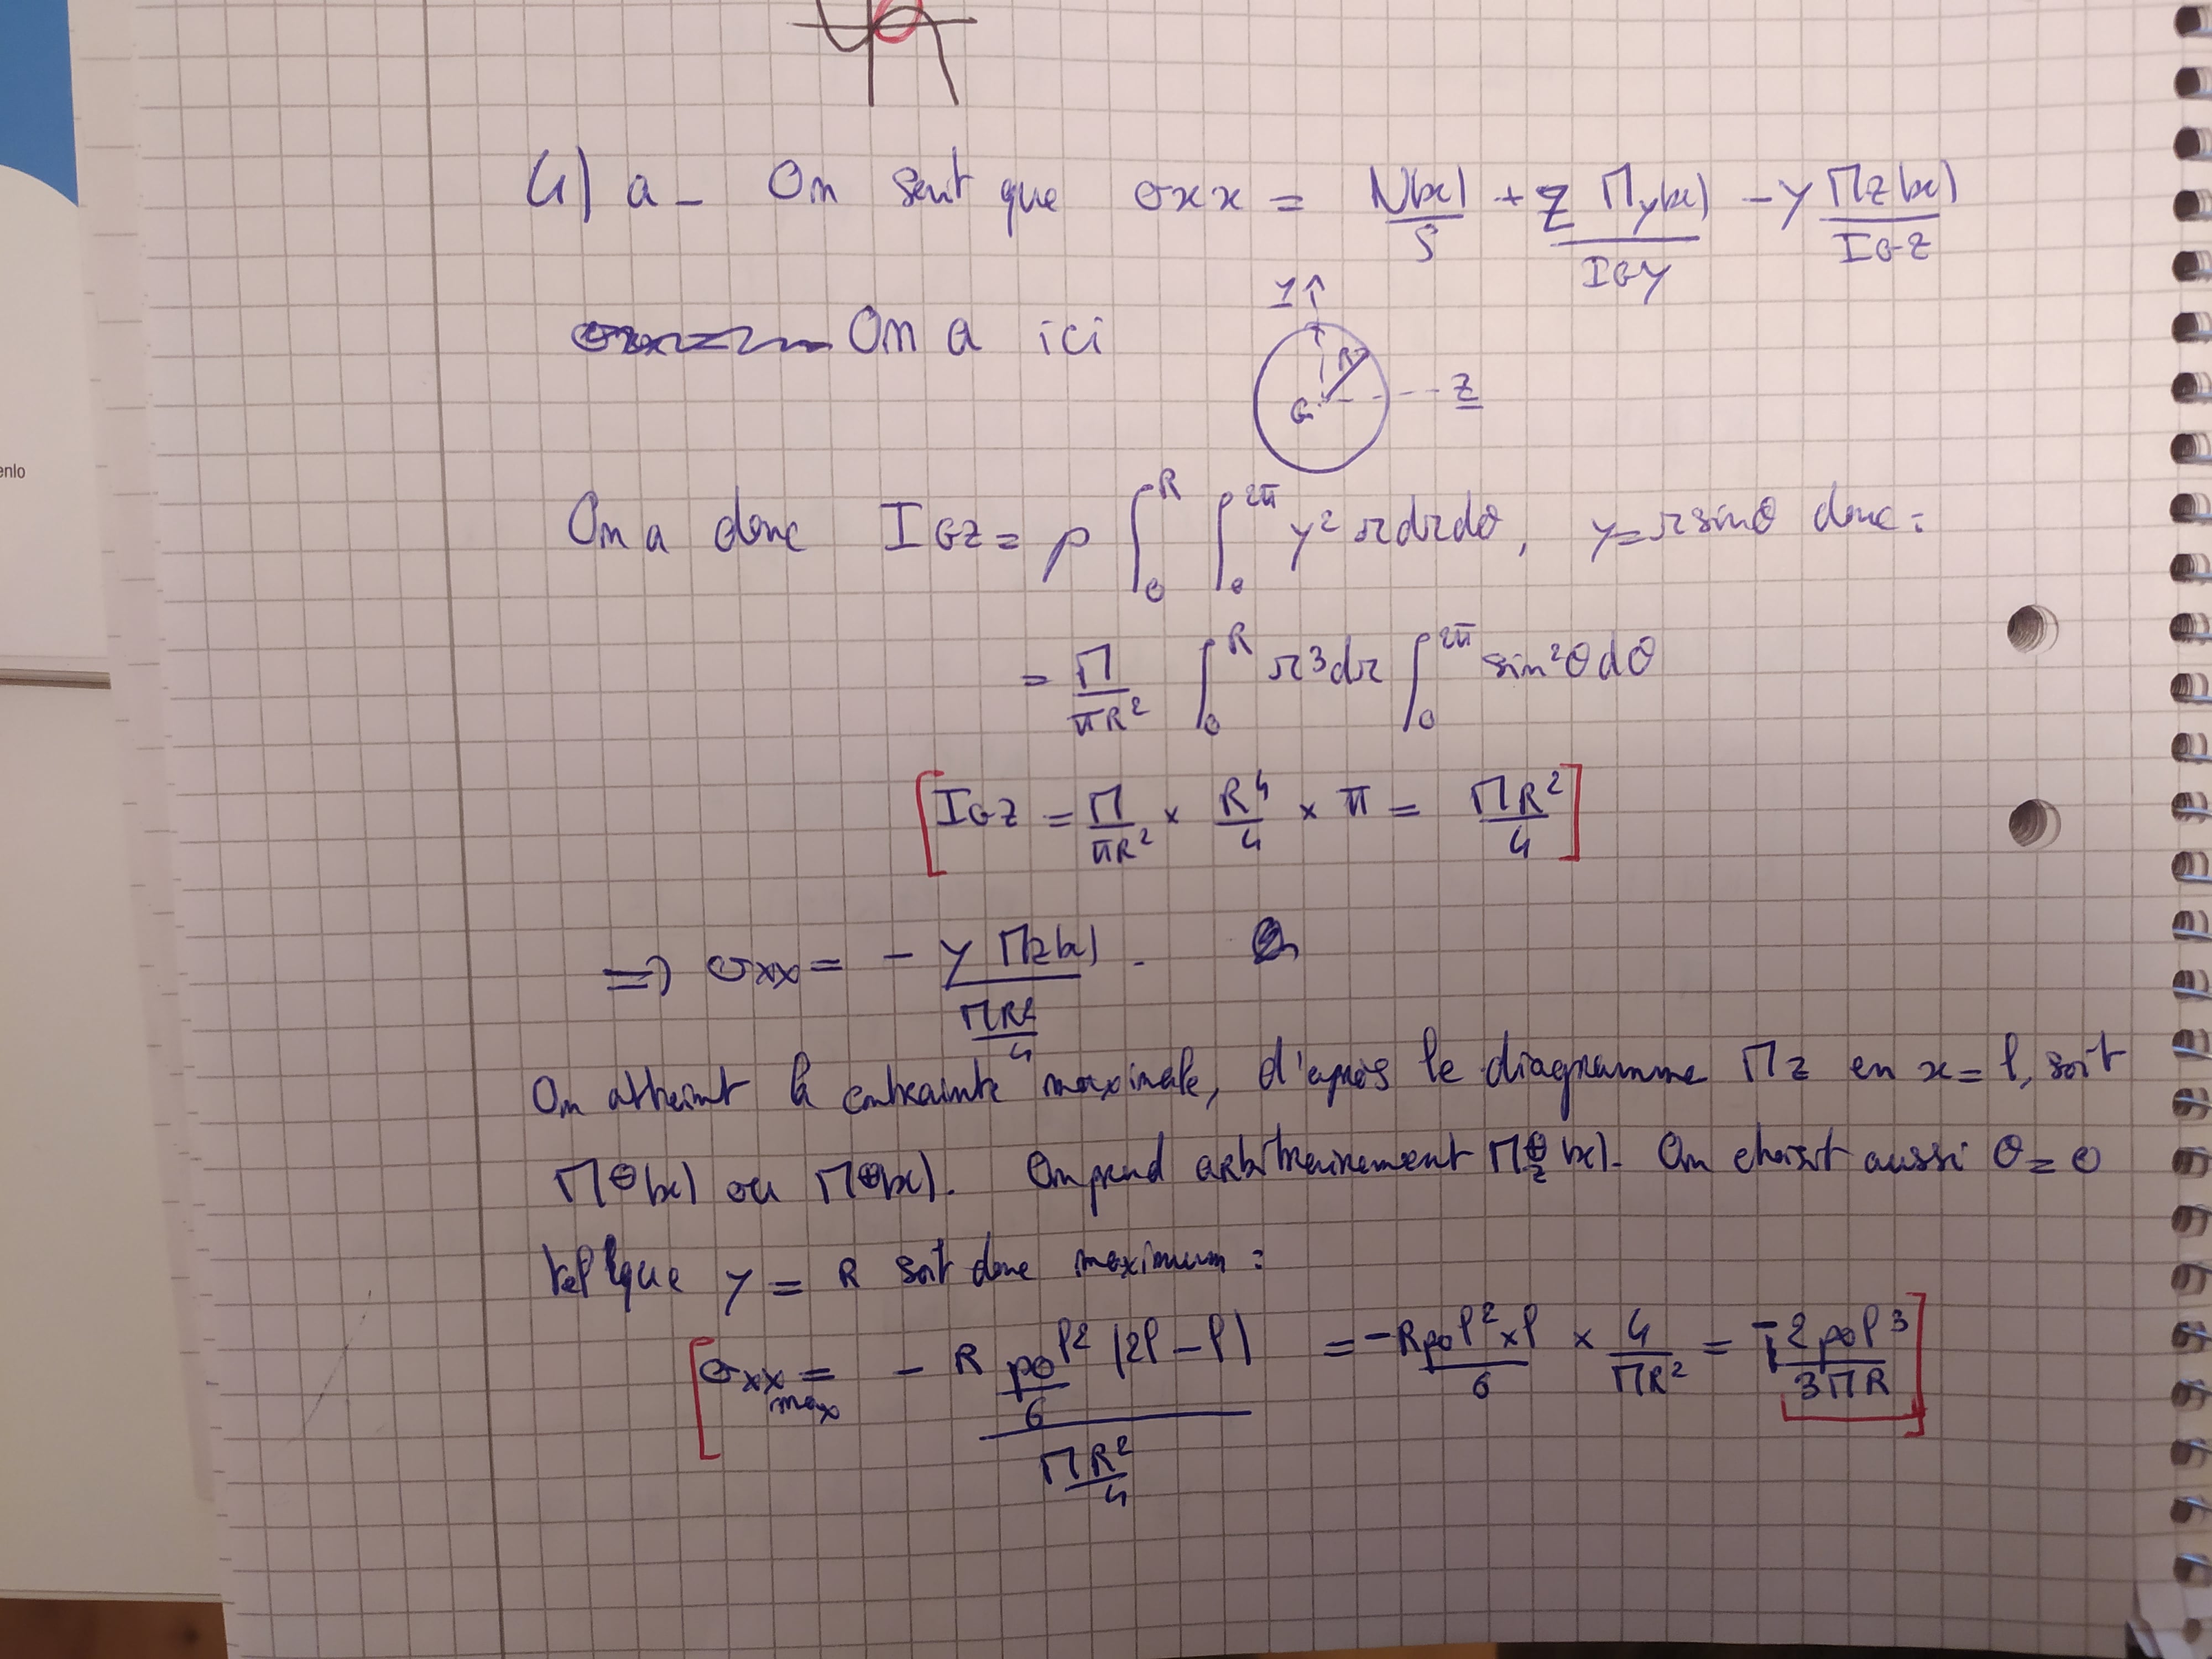 enlo
4) a- On sent que σxx = N(x)/S + z My(x)/IGy - y Mz(x)/IGZ
On a ici
y
R
G
z
On a donc IGZ = ρ ∫₀^R ∫₀^2π y² r dr dθ, y = r sinθ donc :
= M/πR² ∫₀^R r³dr ∫₀^2π sin²θ dθ
[IGZ = M/πR² × R⁴/4 × π = MR²/4]
=> σxx = - y Mz(x) / (MR²/4) .
On atteint la contrainte maximale, d'après le diagramme Mz en x = l, soit
M①(x) ou M②(x). On prend arbitrairement M②(x). On choisit aussi θ = 0
tel que y = R soit donc maximum :
[σxx max = - R p0/6 l² (2l - l) / (MR²/4) = -R p0 l² × l / 6 × 4/MR² = - 2 p0 l³ / 3MR]